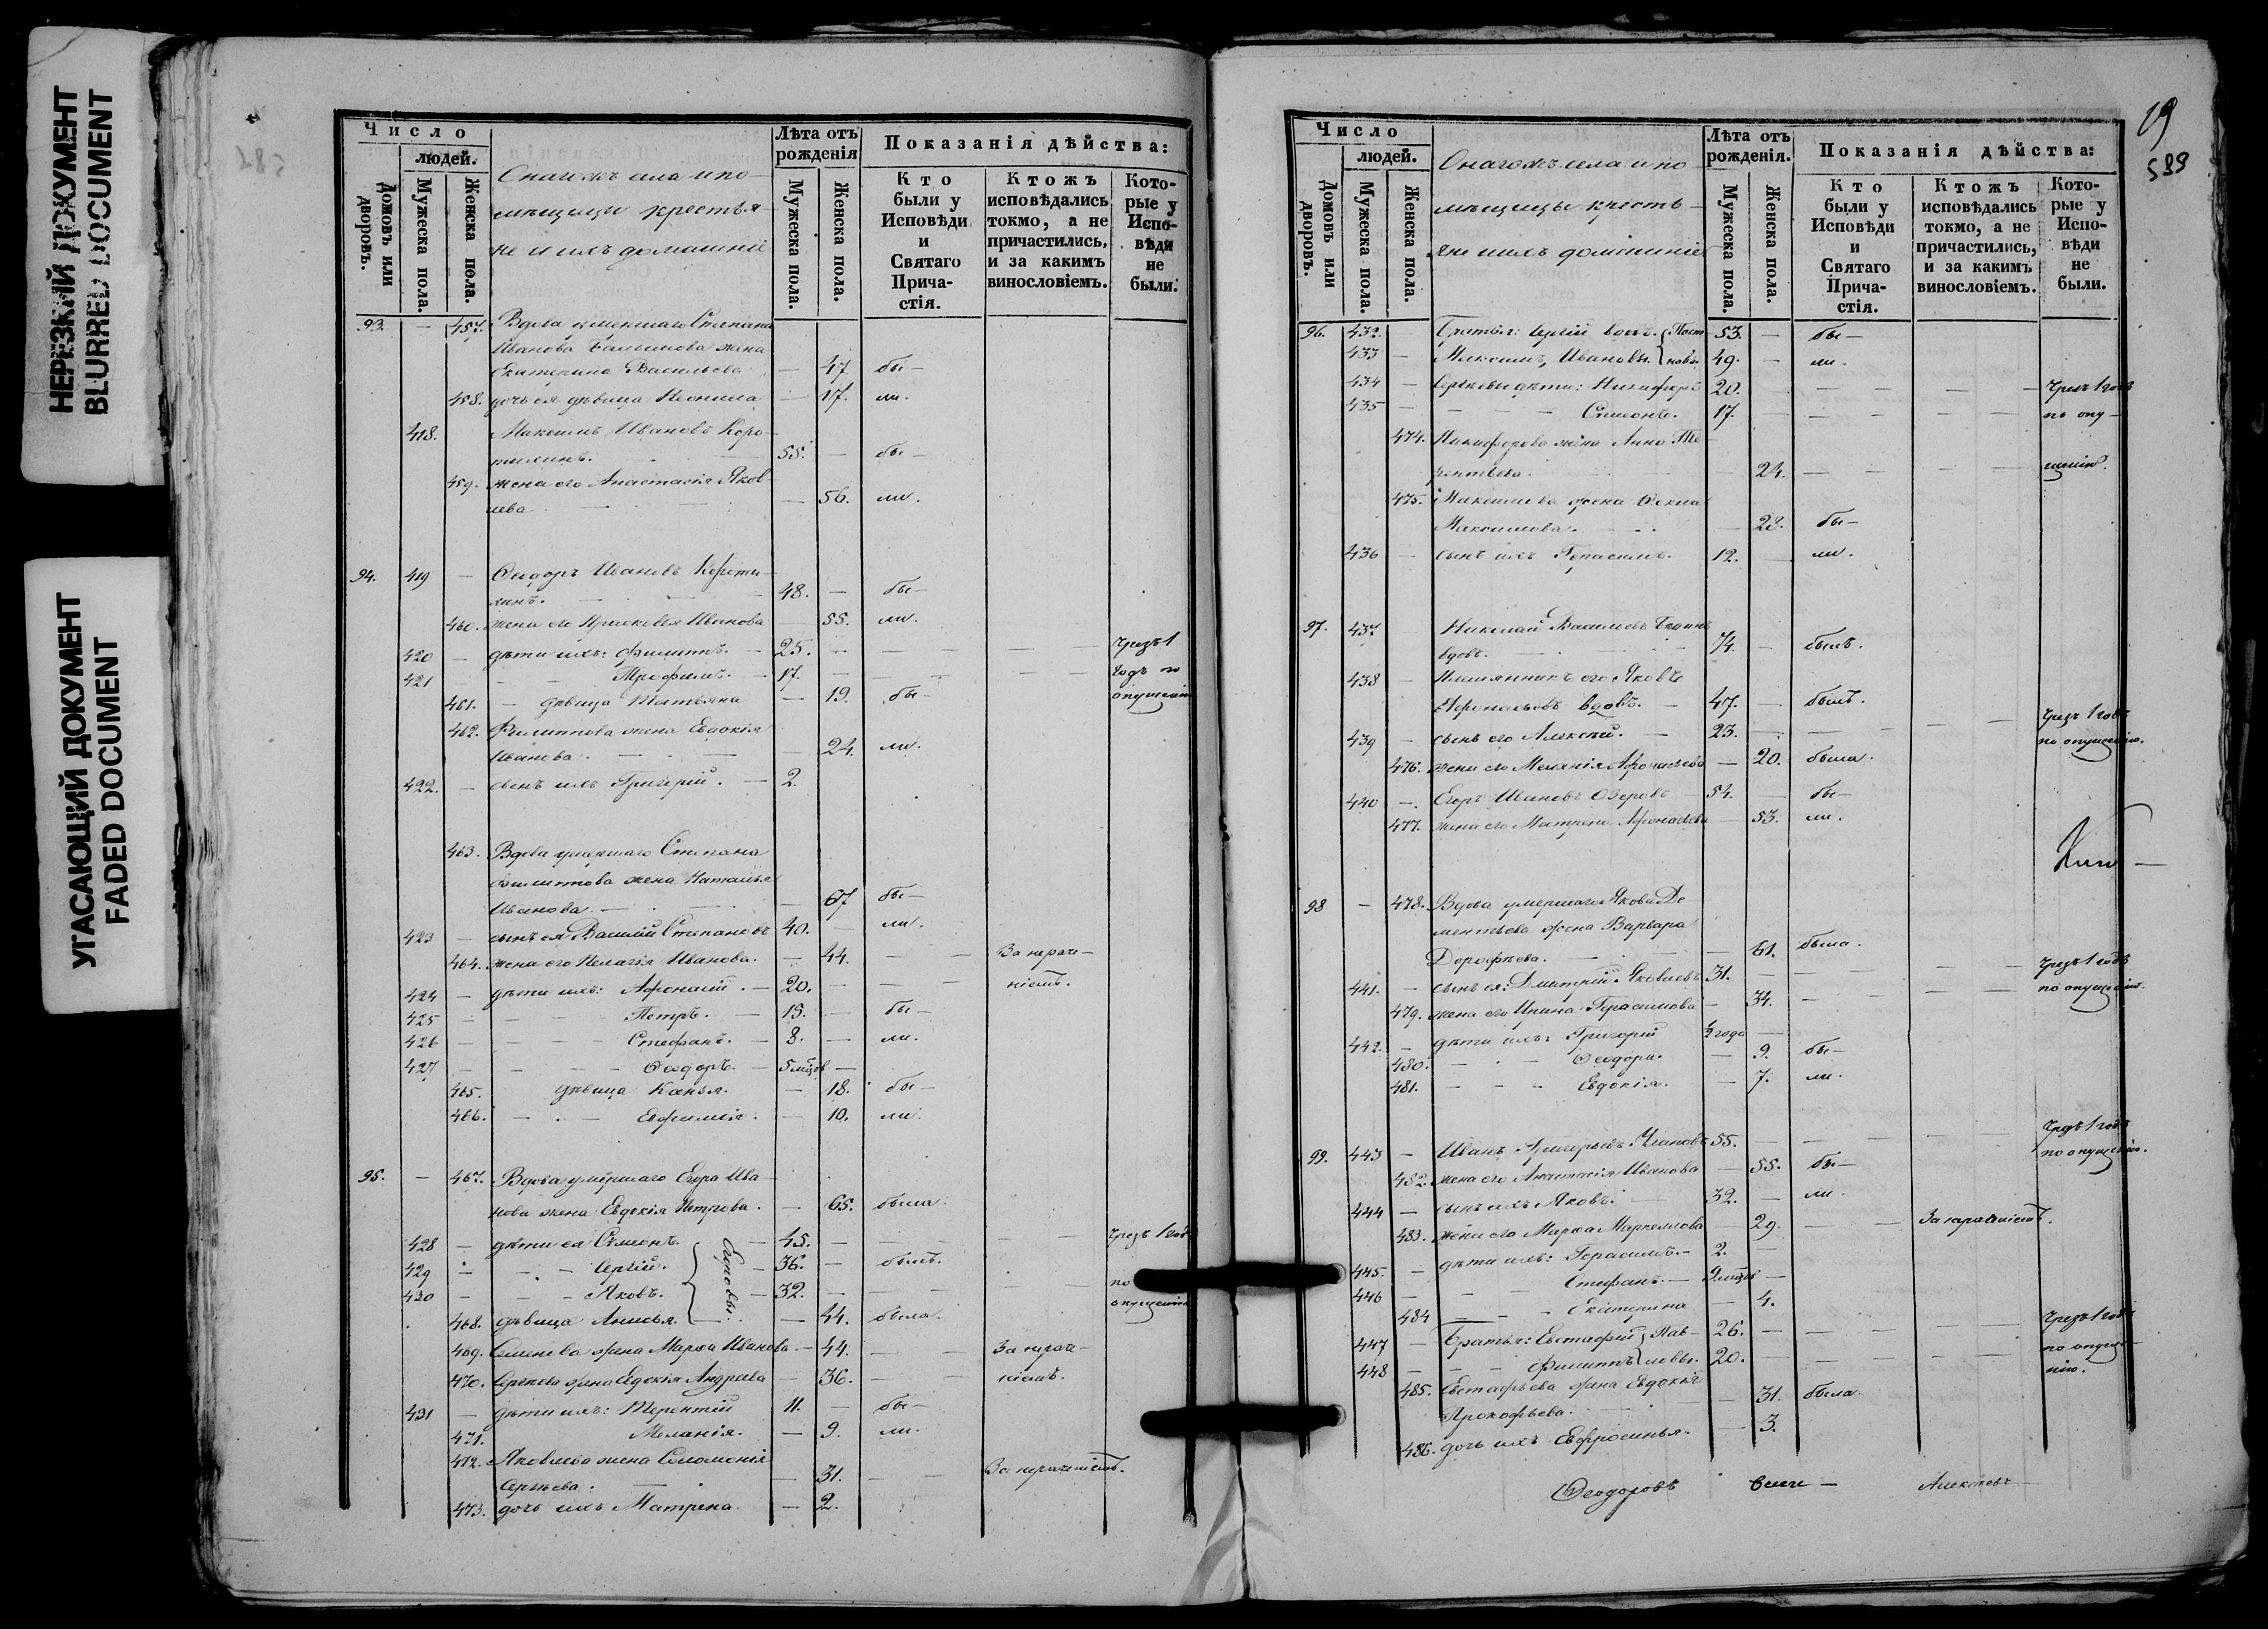 НЕРЕЗКИЙ ДОКУМЕНТ
BLURRED DOCUMENT
УГАСАЮЩИЙ ДОКУМЕНТ
FADED DOCUMENT
Число
людей.
Домовъ или дворовъ.
Мужеска пола.
Женска пола.
Онагожъ села и по-
мѣщицы крестья-
не и ихъ домашніе
Лѣта отъ рожденія
Мужеска пола.
Женска пола.
Показанія дѣйства:
Кто были у Исповѣди и Святаго Прича-стія.
Ктожъ исповѣдались токмо, а не причастились, и за какимъ винословіемъ.
Кото-рые у Испо-вѣди не были.
93. — 457. Вдова умершаго Степана
Иванова жена
Екатерина Васильева — 47 бы—
458. дочь ея дѣвица — 17. ли.
418. Максимъ Ивановъ Коро-
тихинъ. 55. — бы—
459. жена его Анастасія Яков-
лева — 56. ли.
94. 419 — Ѳедоръ Ивановъ
48. — бы—
460. жена его Прасковья Иванова 55. ли.
420 — дѣти ихъ: Филиппъ. — 25. — — — — Чрезъ 1
421 — — Трофимъ. — 17. — — — — годъ по
461. — дѣвица Татьяна — 19. бы— опущенію
462. Филиппова жена Евдокія
Иванова. — — 24. ли.
422. — сынъ ихъ Григорій. — 2.
463. Вдова умершаго Степана
Филиппова жена Наталья
Иванова. — — 67 бы—
423 — сынъ ея Василій Степановъ 40. — ли.
464. жена его Пелагія Иванова. — 44. — — За нерач-
424 — дѣти ихъ: Афонасій. — 20. — — — ніемъ.
425 — — — Петръ. — 15. — бы—
426 — — — Стефанъ. — 8. — ли.
427 — — — Ѳедоръ. — 5 мцов —
465. дѣвица — 18. бы—
466. — — Ефимія. — 10. ли.
95. — 467. Вдова умершаго Егора Ива-
нова жена Евдокія Петрова. — 65. была
428 — дѣти ея Семенъ. — 45. — — — — Чрезъ 1 годъ
429 — — Сергій. — 36. — былъ.
430 — — Яковъ. — 32. — — — — по
Егоровы.
468. дѣвица Анисья. — 44. была. опущенію
469. Семенова жена Марѳа Иванова. — 44. — — За нерач-
470. Сергѣева жена Евдокія Андреева — 36. — — ніемъ.
431 — дѣти ихъ: Терентій 11. — бы—
471. Меланія. — 9. ли.
472. Яковлева жена Соломонія
Сергѣева. — — 31. — — За нераченіемъ.
473. дочь ихъ Матрена. — 2.
19
589
Число
людей.
Домовъ или дворовъ.
Мужеска пола.
Женска пола.
Онагожъ села и по-
мѣщицы кресть-
яне и ихъ домашніе
Лѣта отъ рожденія.
Мужеска пола.
Женска пола.
Показанія дѣйства:
Кто были у Исповѣди и Святаго Прича-стія.
Ктожъ исповѣдались токмо, а не причастились, и за какимъ винословіемъ.
Кото-рые у Испо-вѣди не были.
96. 432. Братья: Сергій вдовъ. 53. — бы—
433 — Максимъ, Ивановы. 49. — ли.
434 — Сергѣевы дѣти: Никифоръ 20. — — — — Чрезъ 1 годъ
435 — — — Симеонъ. 17. — — — — по опу-
474. Никифорова жена Анна Те-
рентьева. 24. — — — — щенію.
475. Максимова жена Ѳекла
Максимова. — 28. бы—
436 — сынъ ихъ Герасимъ. 12. — ли.
97. 437 Николай Васильевъ
вдовъ. 74. — былъ.
438 — Племянникъ его Яковъ
Афонасьевъ вдовъ. — 47. — былъ.
439 — сынъ его Алексѣй. — 23. — — — — Чрезъ 1 годъ по опущенію.
476. жена его Меланія Афонасьева — 20. была.
440 — Егоръ Ивановъ Озеровъ 54. — бы—
477. жена его Матрена Афонасьева — 53. ли.
98 — 478. Вдова умершаго Якова Де-
ментьева жена Варвара
Дорофѣева. — — 61. была.
441. — сынъ ея: Дмитрій Яковлевъ 31. — — — — Чрезъ 1 годъ
479. жена его Ирина Герасимова — 34. — — — — по опущенію.
442. — дѣти ихъ: Григорій ½ года —
480. — — Ѳедора. — 9. бы—
481. — — Евдокія. — 7. ли.
99. 443 — Иванъ Григорьевъ 55. — — — — Чрезъ 1 годъ по опущенію.
482. жена его Анастасія Иванова — 55. бы—
444 — сынъ ихъ Яковъ. 32. — ли.
483. жена его Марѳа Маркеллова — 29. — — За нераченіемъ.
445. — дѣти ихъ: Герасимъ. — 2. —
446 — — — Стефанъ. — 9 мцов —
484 — — Екатерина — 4.
447 — Братья: Евстафій Пав- 26. — — — — Чрезъ 1 годъ
448 — — Филиппъ ловы. 20. — — — — по опуще-
нію.
485. Евстафьева жена Евдокія
Прокофьева. — 31. была.
486. дочь ихъ Евфросинья. — 3.
Ѳеодоровъ
Алексѣевъ